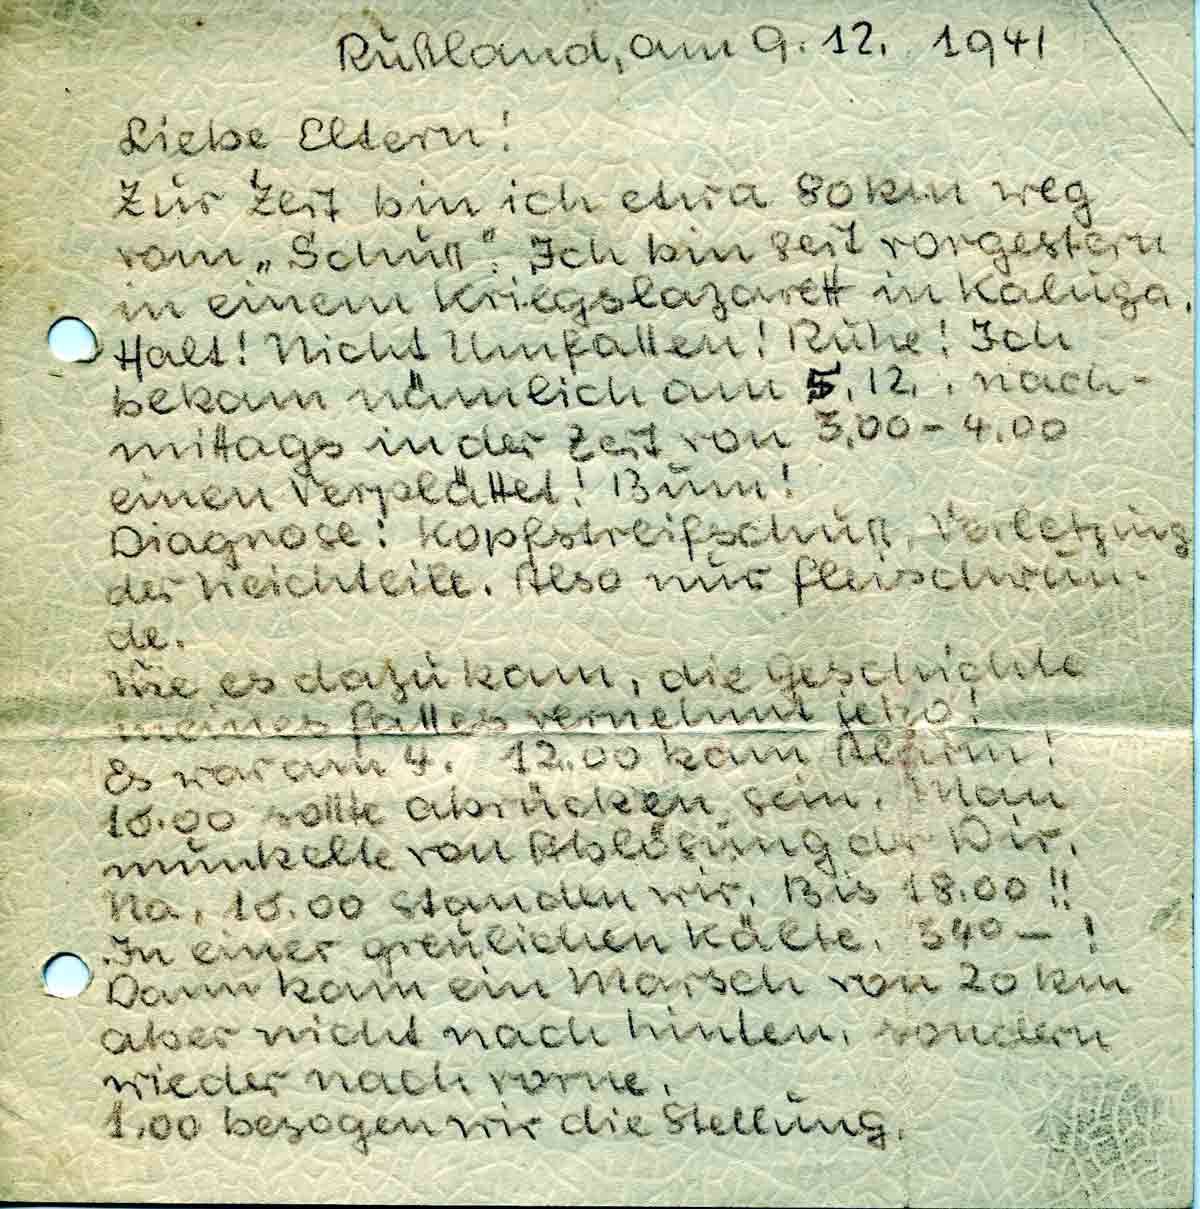 Rußland, am 9. 12. 1941
Liebe Eltern!
Zur Zeit bin ich etwa 80 km weg
vom „Schuß". Ich bin seit vorgestern
in einem Kriegslazarett in Kaluga.
Halt! Nicht Umfallen! Ruhe! Ich
bekam nämlich am 5. 12., nach-
mittags in der Zeit von 3,00 - 4,00
einen verplättet! Bum!
Diagnose: Kopfstreifschuß, Verletzung
der Weichteile. Also nur Fleischwun-
de.
Wie es dazu kam, die Geschichte
meines Falles vernehmt jetzo!
Es war am 4. 12.00 kam Alarm!
15.00 sollte abrücken sein. Man
munkelte von Ablösung der Div.
Na, 15.00 standen wir. Bis 18.00!!
In einer greulichen Kälte. 34° - !
Dann kam ein Marsch von 20 km
aber nicht nach hinten, sondern
wieder nach vorne.
1.00 bezogen wir die Stellung.